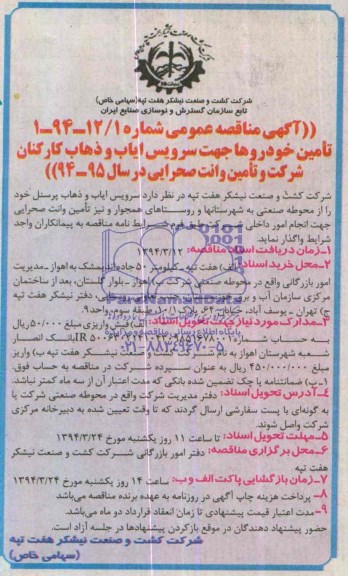 شرکت کشت و صنعت نیشکر هفت تپه (سهامی خاص)
تابع سازمان گسترش و نوسازی صنایع ایران
((آگهی مناقصه عمومی شماره ۱۲/۱-۹۴-۱
تأمین خودروها جهت سرویس ایاب و ذهاب کارکنان
شرکت و تأمین وانت صحرایی در سال ۹۵-۹۴))
شرکت کشت و صنعت نیشکر هفت تپه در نظر دارد سرویس ایاب و ذهاب پرسنل خود
را از محوطه صنعتی به شهرستانها و روستاهای همجوار و نیز تأمین وانت صحرایی
جهت انجام امور داخلی شرایط نامه مناقصه به پیمانکاران واجد
شرایط واگذار نماید.
۱-زمان دریافت اسناد مناقصه: ۱۳۹۴/۳/۱۲
۲-محل خرید اسناد: الف) هفت تپه - کیلومتر ۵۰ جاده اندیمشک به اهواز - مدیریت
امور بازرگانی واقع در محوطه صنعتی شرکت ب) اهواز - بلوار گلستان، بعد از ساختمان
مرکزی سازمان آب و برق دفتر نیشکر هفت تپه
ج) تهران - یوسف آباد، خیابان پلاک ۱۰/۱، طبقه سوم، واحد ۹.
۳-مدارک مورد نیاز جهت تحویل اسناد: الف) فیش واریزی مبلغ ۵۰۰/۰۰۰ ریال
بانک انصار
شعبه شهرستان اهواز به نام نیشکر هفت تپه ب) واریز
مبلغ ۴۵۰/۰۰۰/۰۰۰ ریال به عنوان سپرده شرکت در مناقصه به حساب فوق.
۱-ب) ضمانتنامه یا چک تضمین شده بانکی که مدت اعتبار آن از سه ماه کمتر نباشد.
۴-آدرس تحویل اسناد: دفتر مدیریت شرکت واقع در محوطه صنعتی شرکت یا
به گونه‌ای با پست سفارشی ارسال گردند که تا وقت تعیین شده به دبیرخانه مرکزی
شرکت واصل شوند.
۵-مهلت تحویل اسناد: تا ساعت ۱۱ روز یکشنبه مورخ ۱۳۹۴/۳/۲۴
۶-محل برگزاری مناقصه: دفتر امور بازرگانی شرکت کشت و صنعت نیشکر
هفت تپه
۷-زمان بازگشایی پاکت الف و ب: ساعت ۱۴ روز یکشنبه مورخ ۱۳۹۴/۳/۲۴
۸- پرداخت هزینه چاپ آگهی در روزنامه به عهده برنده مناقصه می‌باشد
۹-مدت اعتبار قیمت پیشنهادی تا زمان انعقاد قرارداد دو ماه می‌باشد.
حضور پیشنهاد دهندگان در موقع بازکردن پیشنهادها در جلسه آزاد است.
شرکت کشت و صنعت نیشکر هفت تپه
(سهامی خاص)